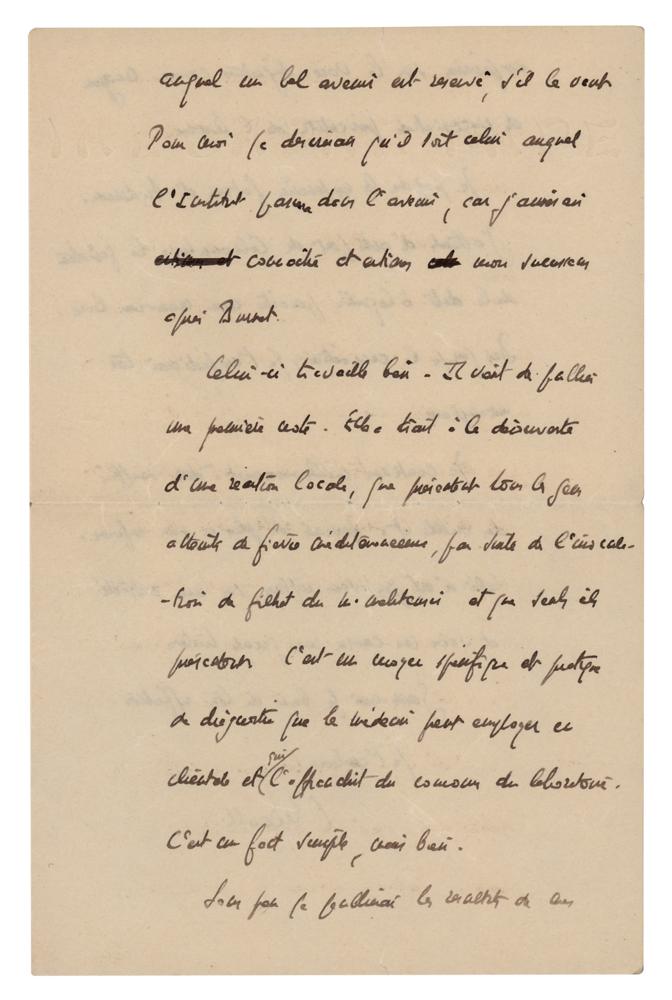 auquel un bel avenir est réservé, s'il le veut
Pour moi je desirerais qu'il soit celui auquel
l'Institut dans l'avenir, car j'aimerais
connaître et estimer mon successeur
après Burnet.
Celui-ci travaille bien - Il vient de publier
une première note. Elle a trait à la découverte
d'une réaction locale, que présentent tous les gens
atteints de fièvre méditerranéenne, par suite de l'inocula-
-tion de filtrat du m. melitensis et que seuls ils
présentent. C'est un moyen spécifique et pratique
de diagnostic que le médecin peut employer en
clientèle et qui l'affranchit du concours du laboratoire.
C'est un fait simple, mais bien.
Sous peu je publierai les résultats de